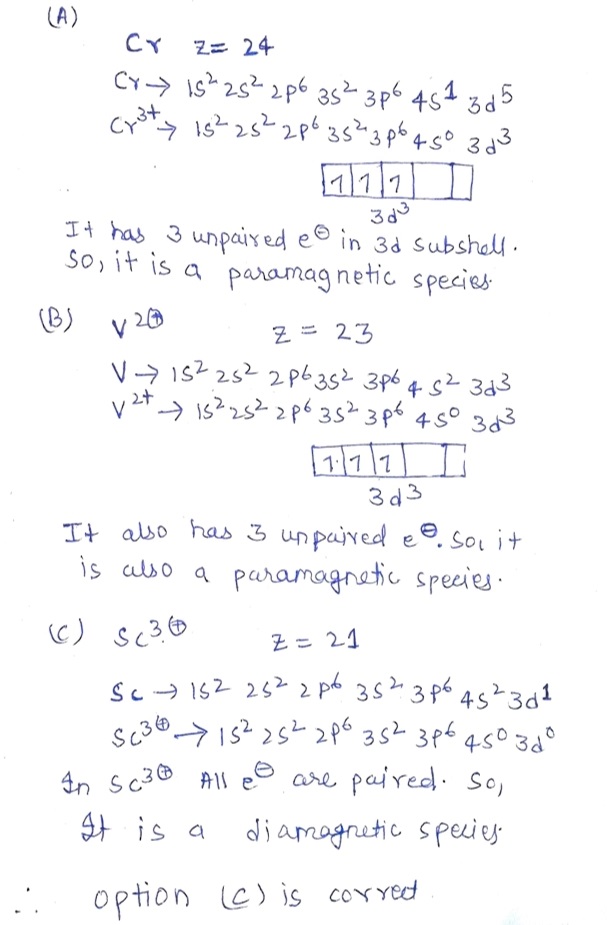 (A)
Cr z= 24
Cr→ 1s² 2s² 2p⁶ 3s² 3p⁶ 4s¹ 3d⁵
Cr³⁺→ 1s² 2s² 2p⁶ 3s² 3p⁶ 4s⁰ 3d³
1 1 1
3d³
It has 3 unpaired e⊖ in 3d subshell.
So, it is a paramagnetic species.
(B) V²⊕ z = 23
V→ 1s² 2s² 2p⁶ 3s² 3p⁶ 4s² 3d³
V²⁺→ 1s² 2s² 2p⁶ 3s² 3p⁶ 4s⁰ 3d³
1 1 1
3d³
It also has 3 unpaired e⊖. So, it
is also a paramagnetic species.
(C) Sc³⊕ z = 21
Sc → 1s² 2s² 2p⁶ 3s² 3p⁶ 4s² 3d¹
Sc³⊕→ 1s² 2s² 2p⁶ 3s² 3p⁶ 4s⁰ 3d⁰
In Sc³⊕ All e⊖ are paired. So,
It is a diamagnetic species.
∴ option (C) is correct